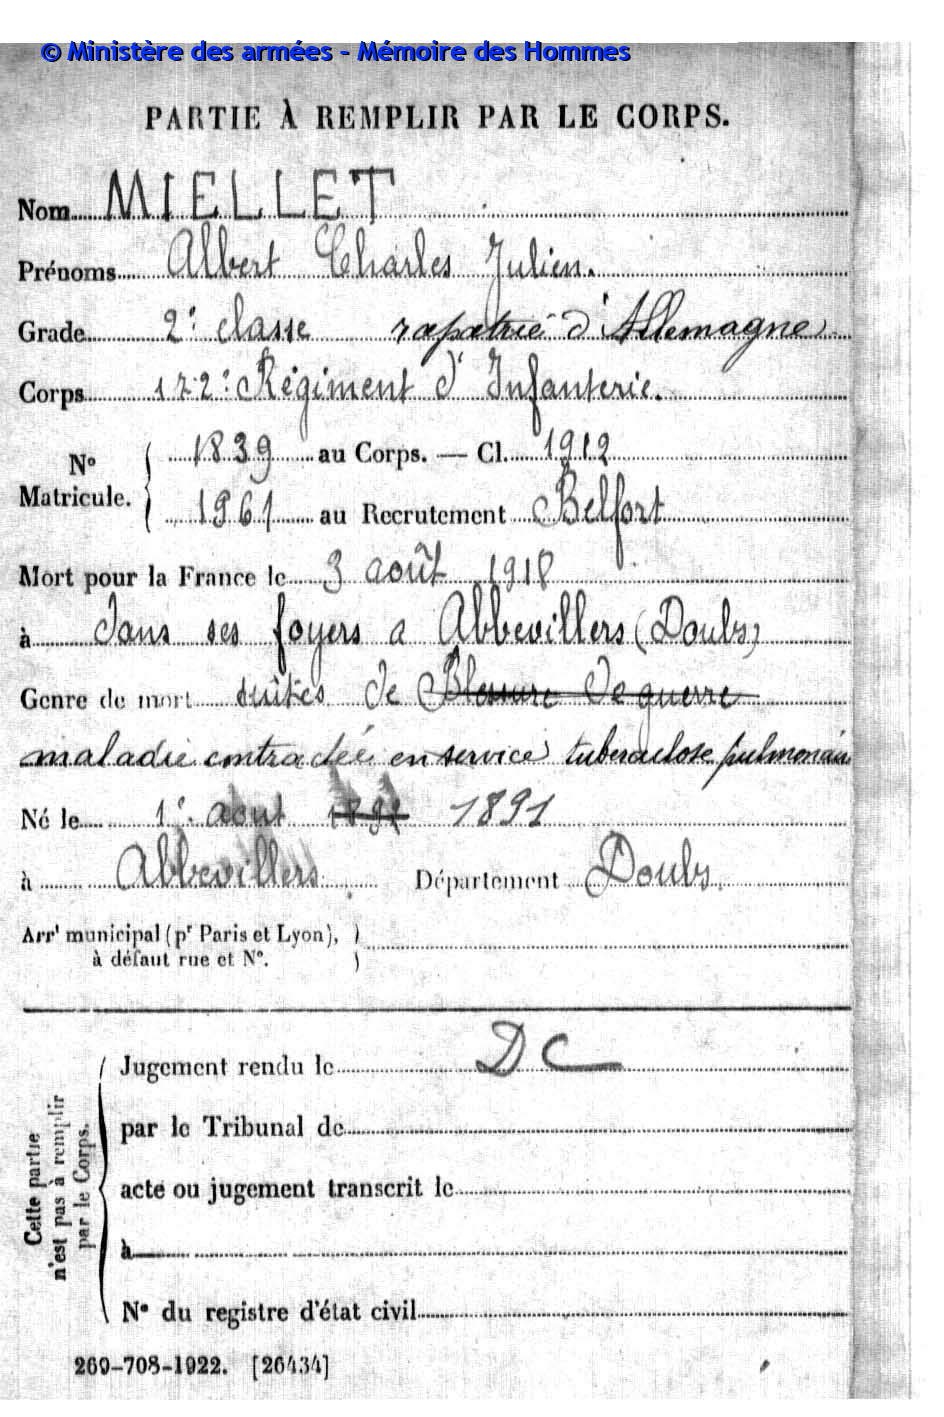 © Ministère des armées - Mémoire des Hommes
PARTIE À REMPLIR PAR LE CORPS.
Nom MIELLET
Prénoms Albert Charles Julien.
Grade 2e classe rapatrié d'Allemagne
Corps 172e Régiment d'Infanterie.
No Matricule. 1839 au Corps. — Cl. 1912
1961 au Recrutement Belfort
Mort pour la France le 3 août 1918
à dans ses foyers a Abbevillers (Doubs)
Genre de mort suites de Blessure de guerre
maladie contractée en service tuberculose pulmonaire
Né le 1er aout 1891
à Abbevillers Département Doubs.
Arrt municipal (pr Paris et Lyon),
à défaut rue et No.
DC
Jugement rendu le
par le Tribunal de
acte ou jugement transcrit le
à
No du registre d'état civil
Cette partie
n'est pas à remplir
par le Corps.
269-708-1922. [26434]